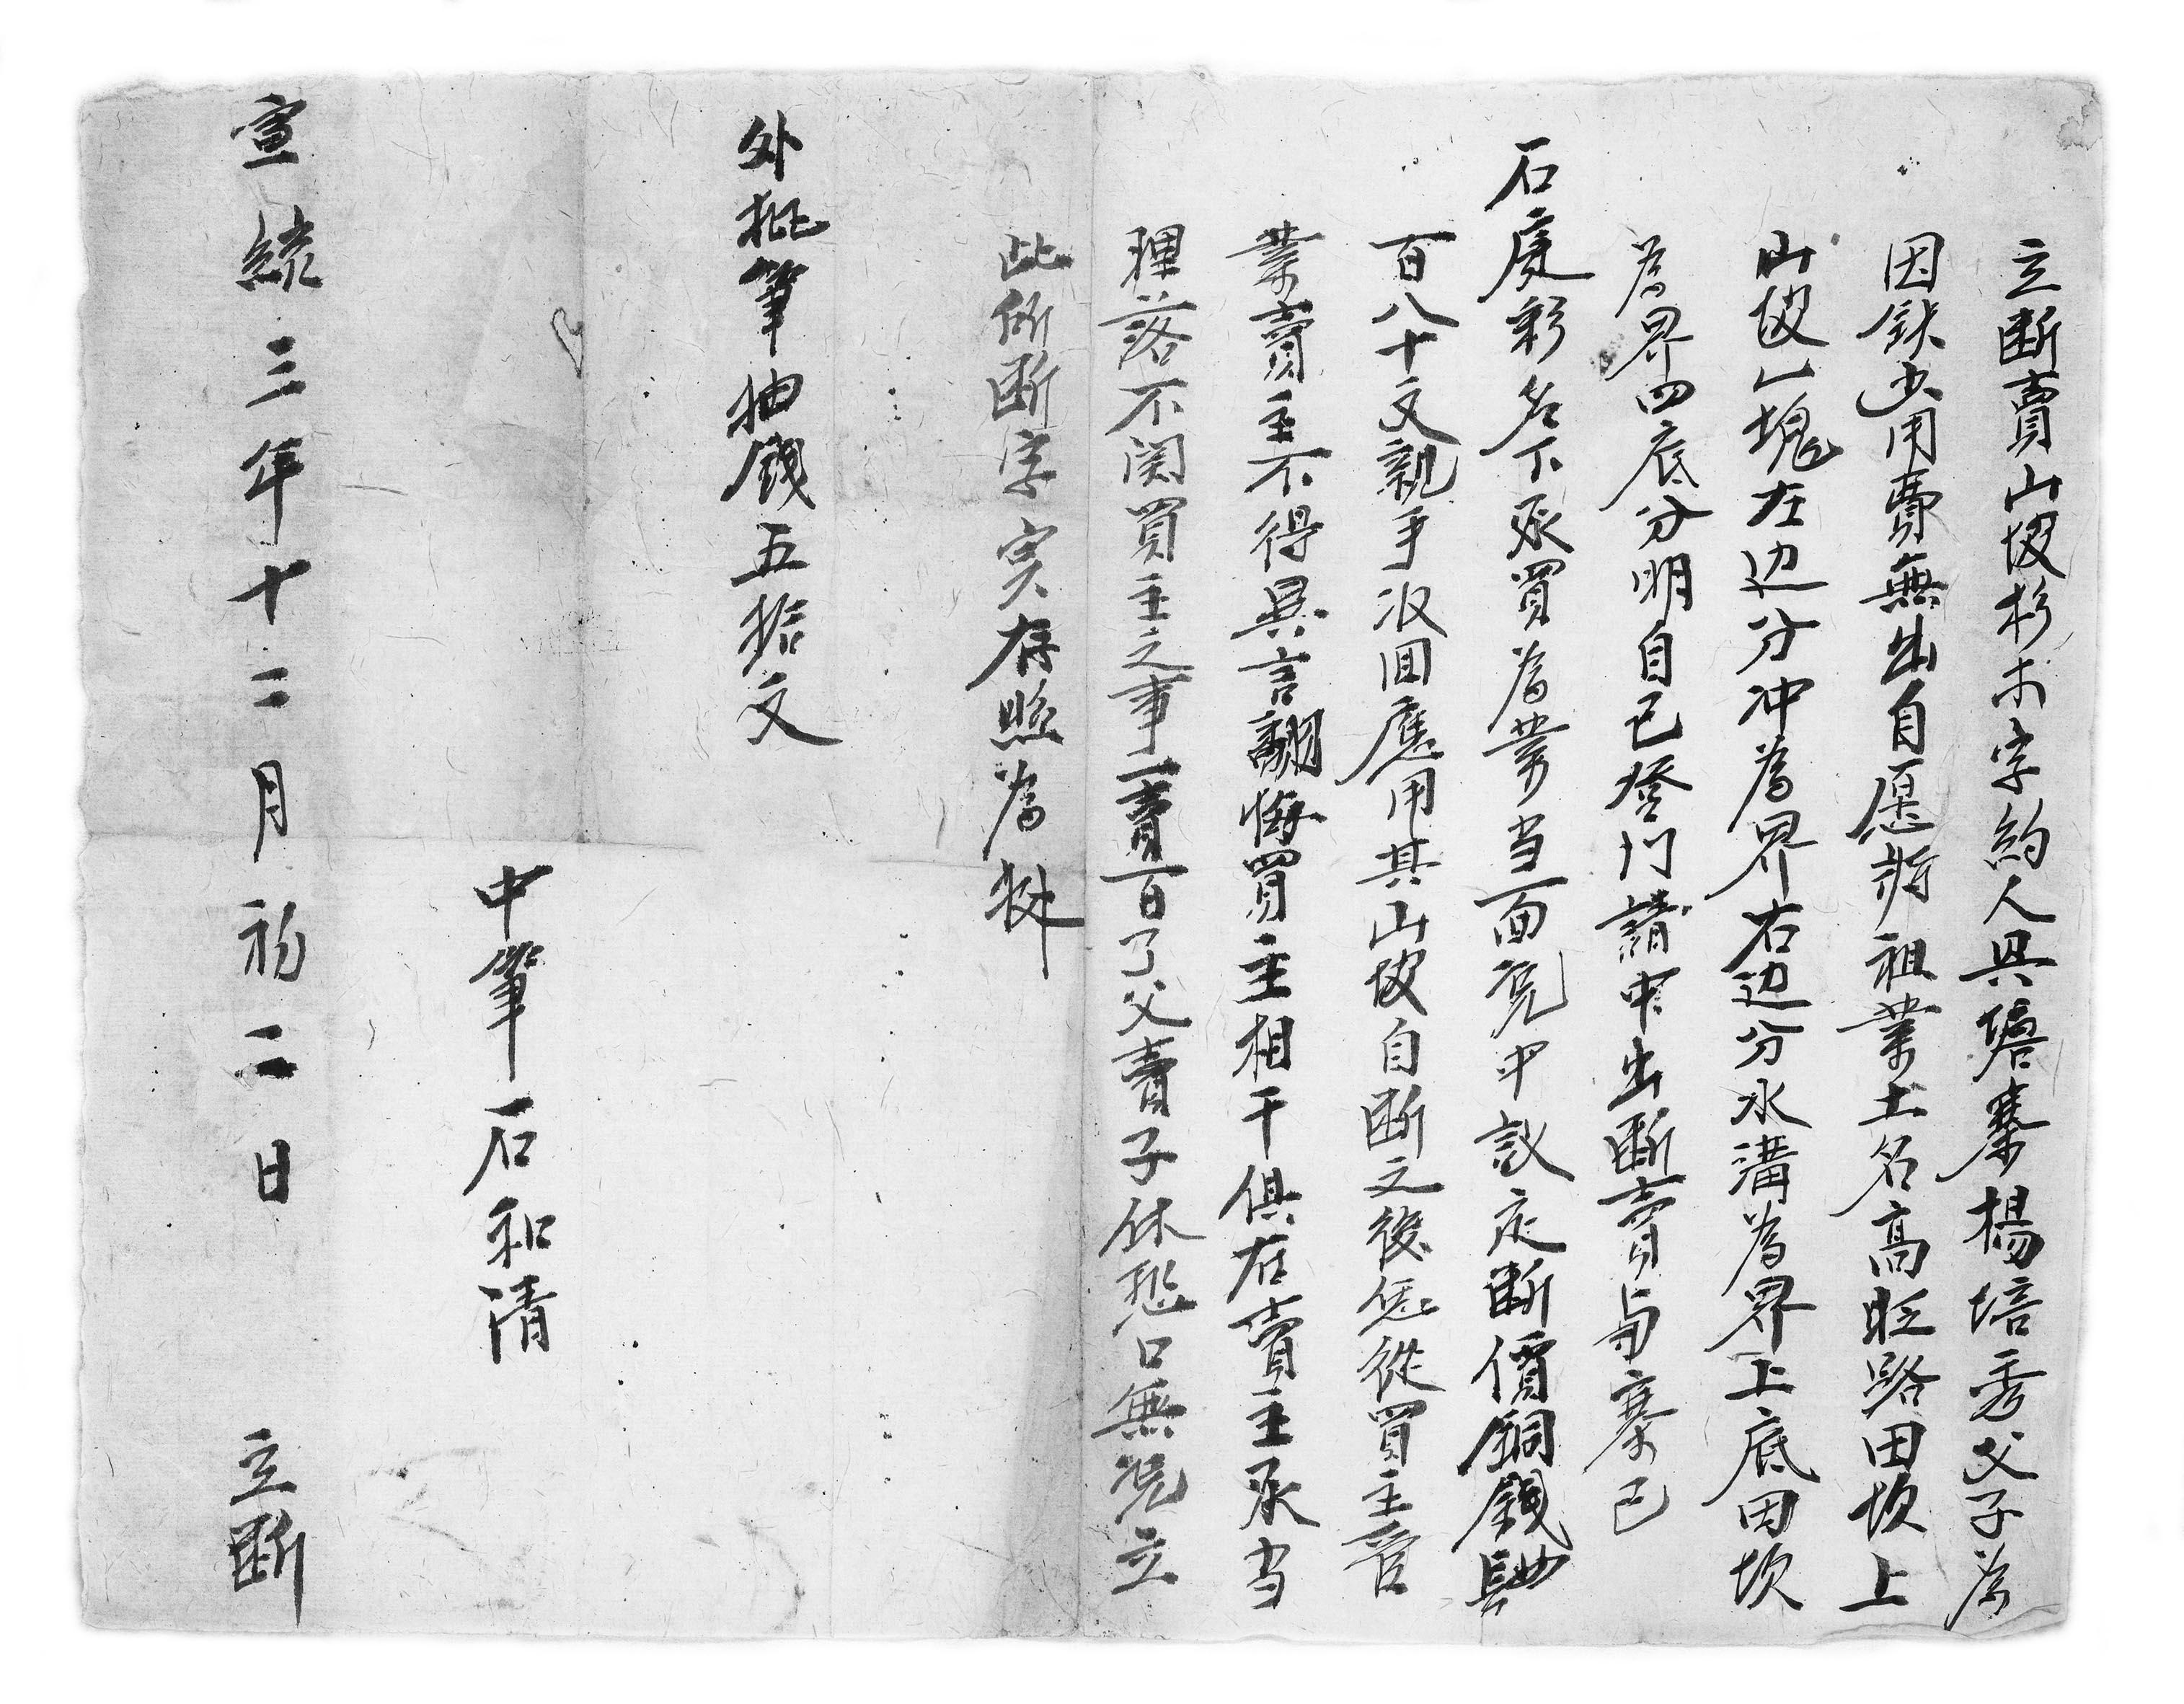 立断賣山坡杉木字約人具塘寨楊培秀父子為
因缺少用費無出自愿將祖業土名高眰路田坎上
山坡一塊左边分冲為界右边分水溝為界上底田坎
為界四底分明自己登门請中出断賣与寨己
石庚彩名下承買為業当面凭中議定断價銅錢
百八十文親手収回應用其山坡自断之後任從買主管
業賣主不得異言翻悔買主相干俱在賣主承当
理落不関買主之事一賣百了父賣子休恐口無凭立
此所断字実存照為挗
外批筆抽錢五拾文
中筆石和清
宣統三年十二月初二日 立断